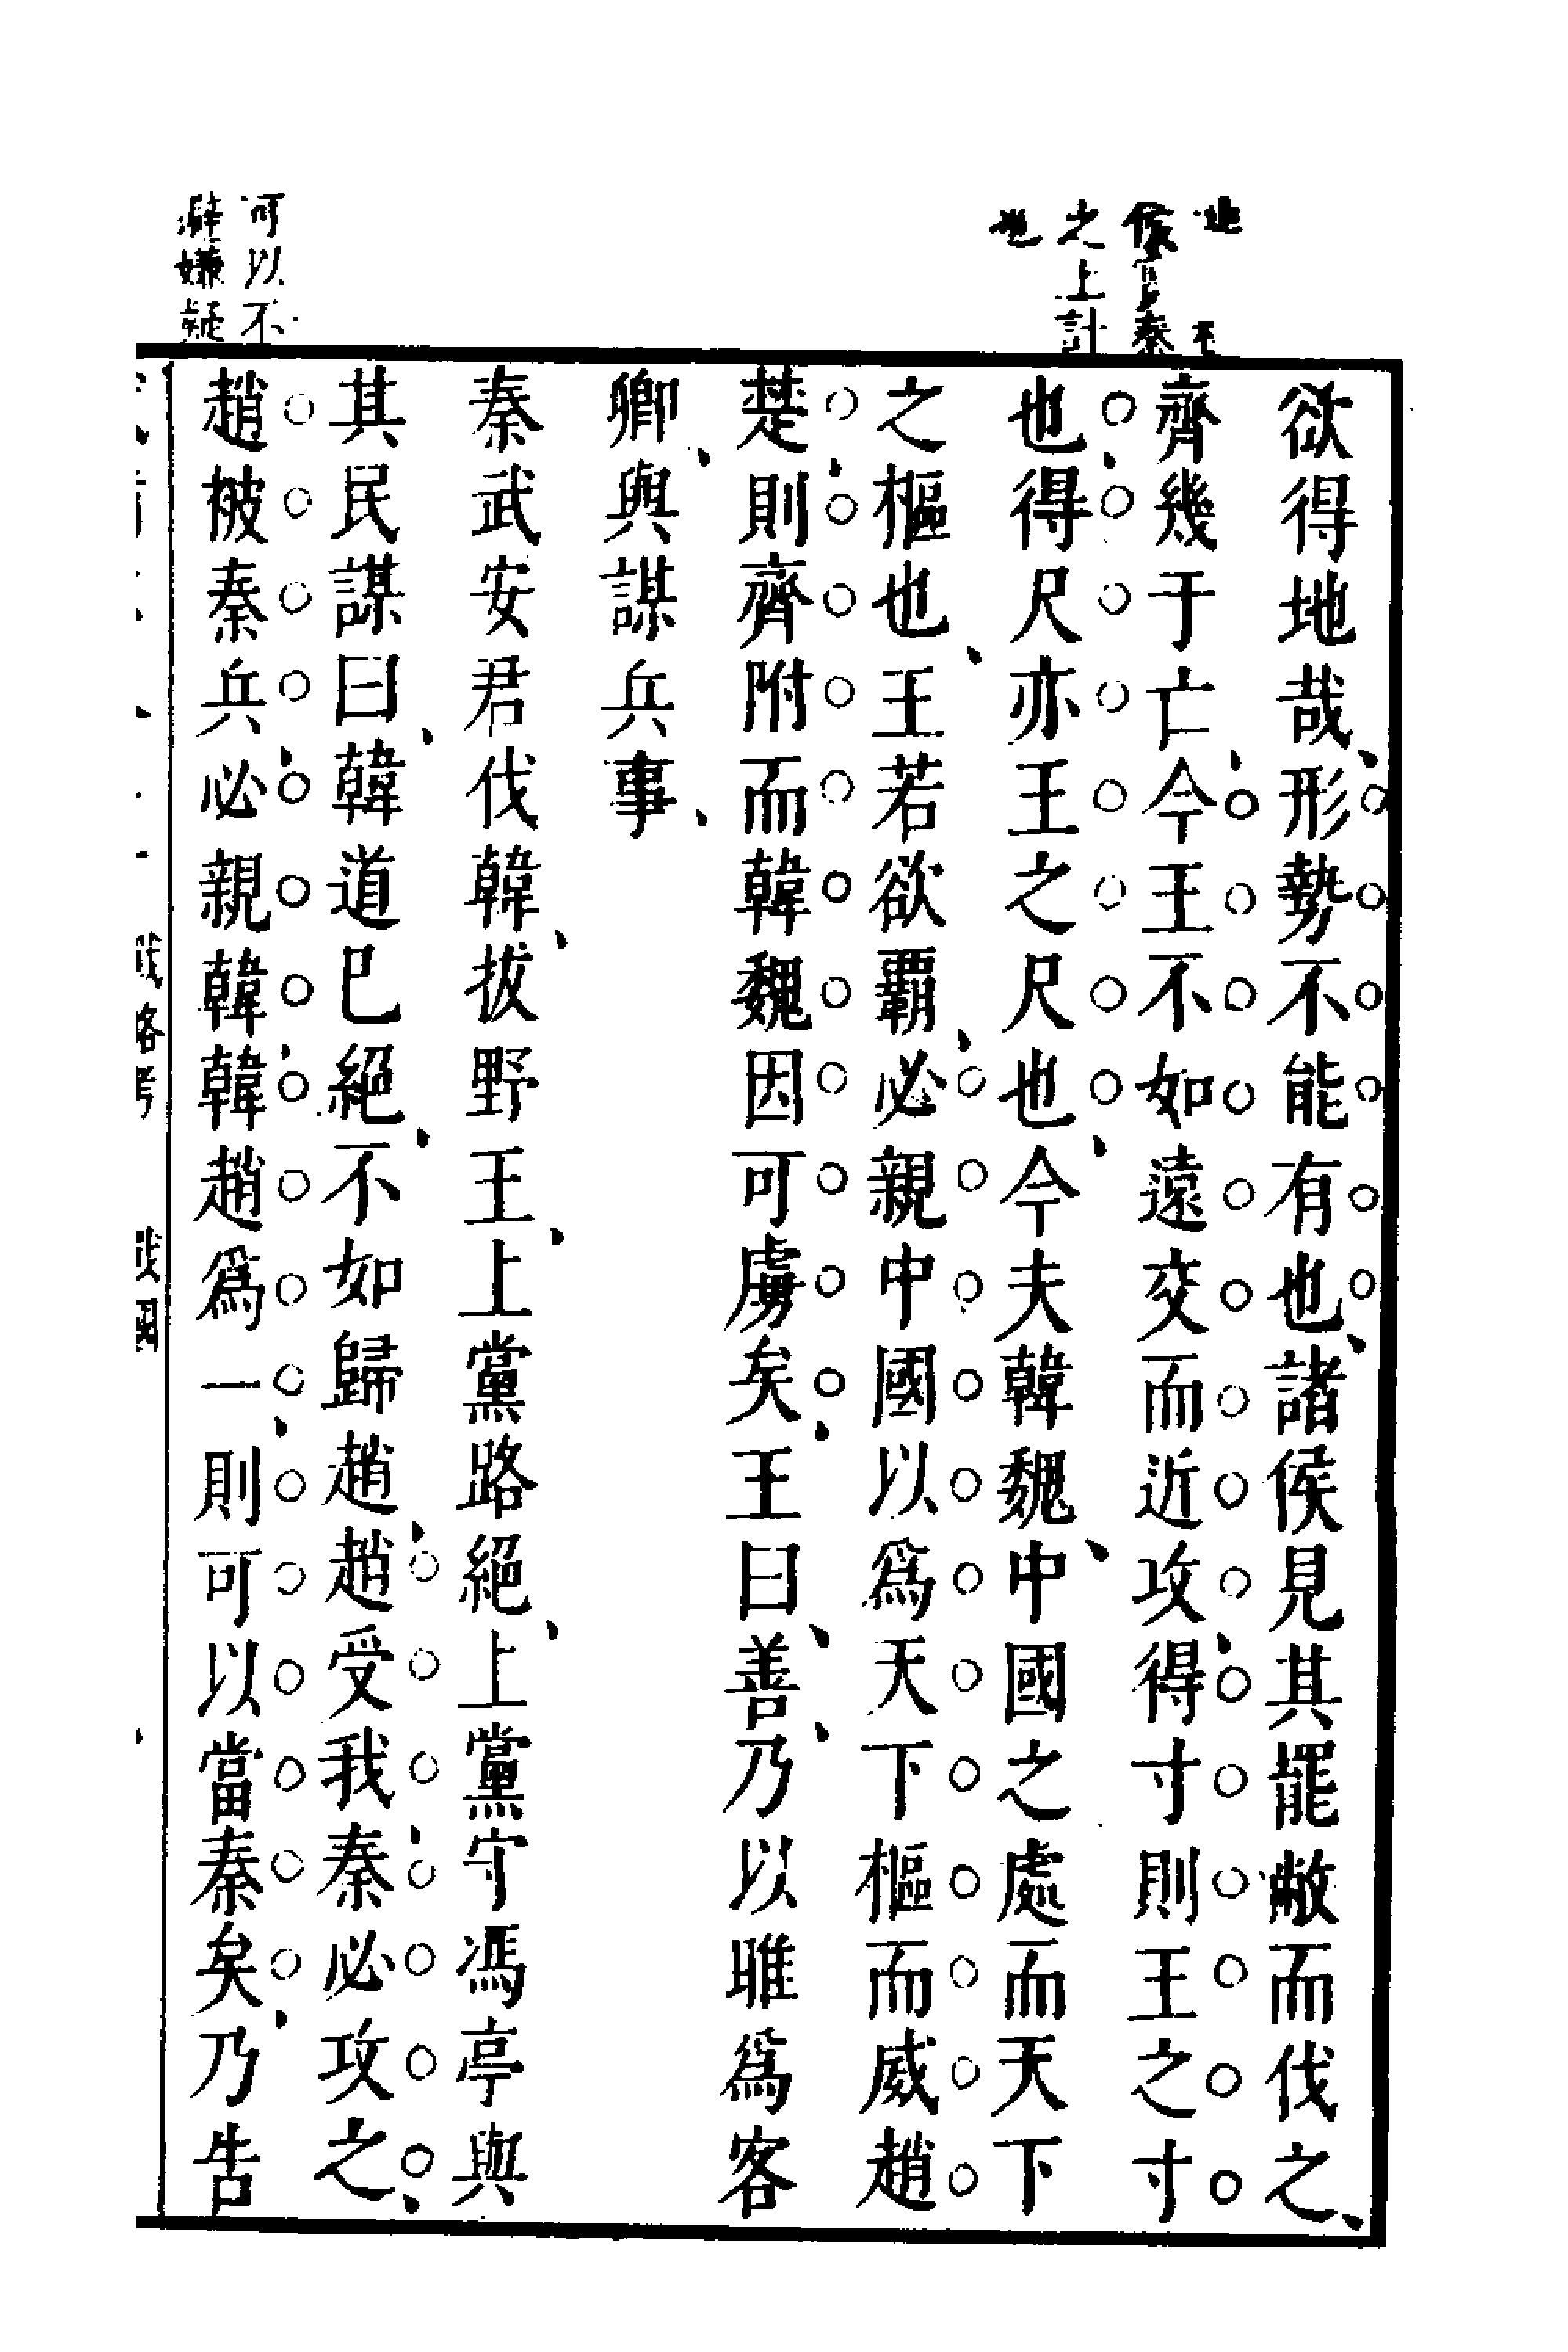 欲得地哉形勢不能有也諸侯見其罷敝而伐之
齊幾于亡今王不如遠交而近攻得寸則王之寸
也得尺亦王之尺也今夫韓魏中國之處而天下
之樞也王若欲覇必親中國以為天下樞而威趙
楚則齊附而韓魏因可虜矣王曰善乃以雎為客
卿與謀兵事
秦武安君伐韓拔野王上黨路絕上黨守馮亭與
其民謀曰韓道已絕不如歸趙趙受我秦必攻之
趙被秦兵必親韓韓趙為一則可以當秦矣乃告
之上計
也
可以不
避嫌疑
戰略考 戰國